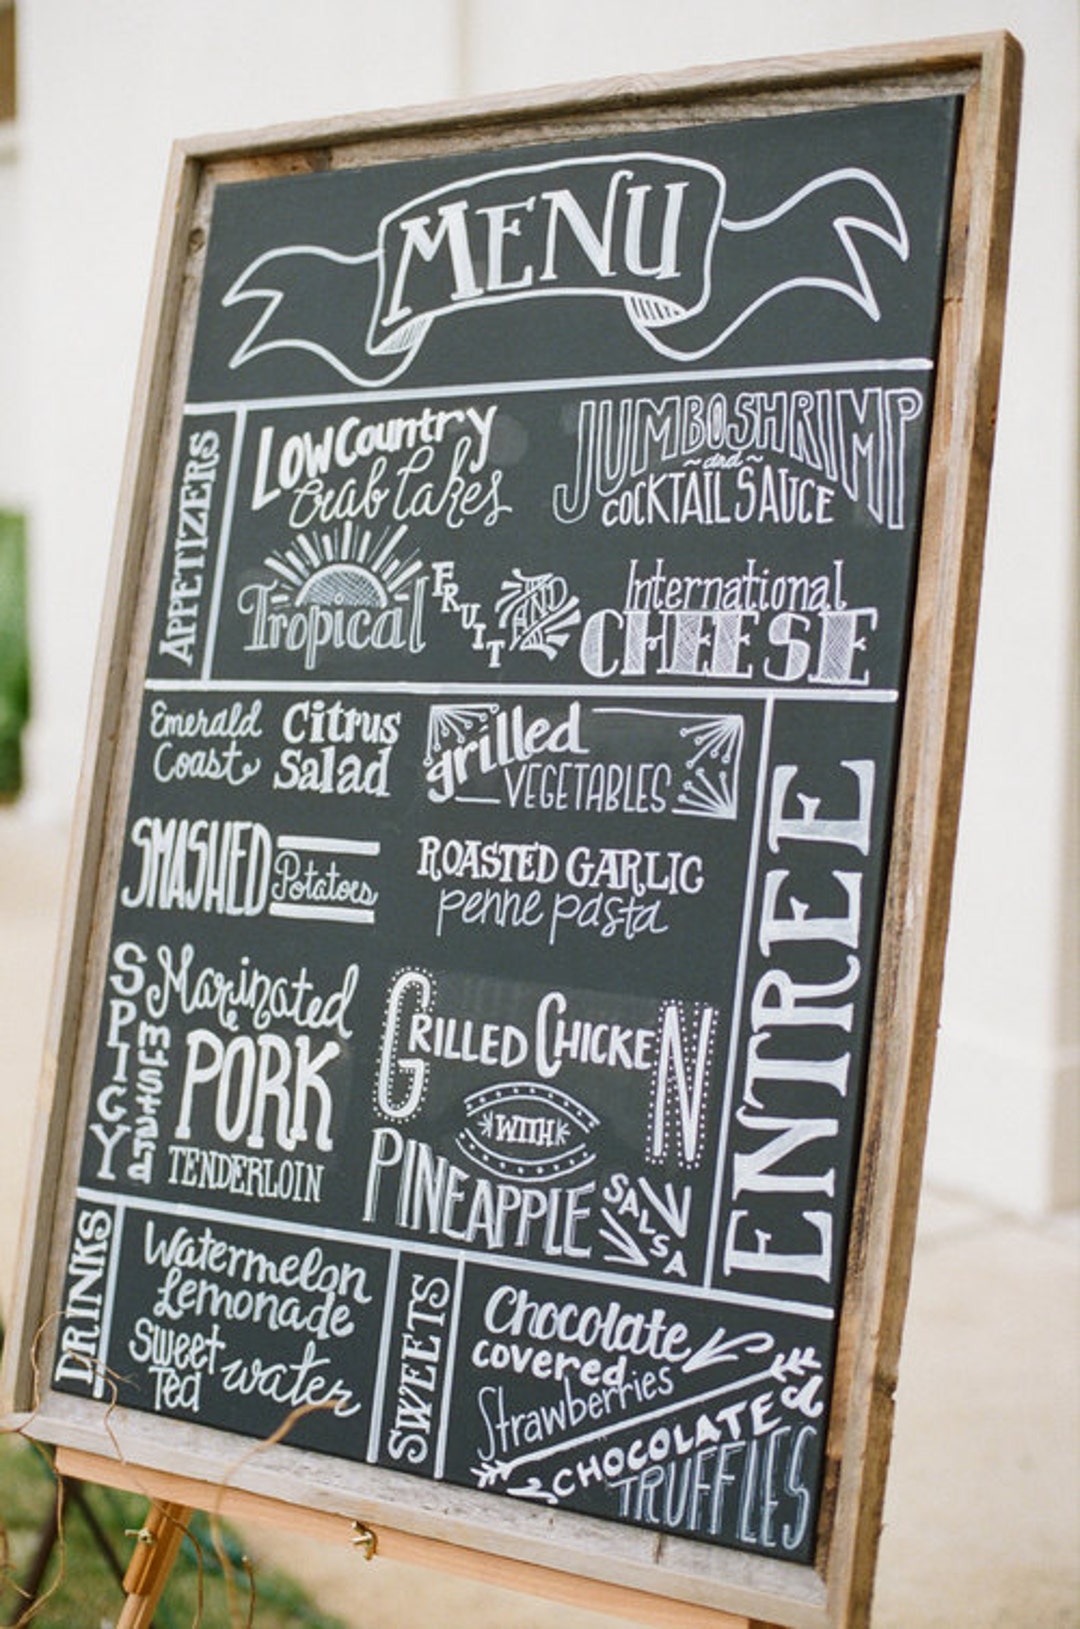 MENU
APPETIZERS
LOW Country
Crab Cakes
JUMBO SHRIMP
~and~
COCKTAIL SAUCE
Tropical FRUIT AND
International
CHEESE
ENTREE
Emerald
Coast
Citrus
Salad
grilled
VEGETABLES
SMASHED Potatoes
ROASTED GARLIC
penne pasta
SPICY
Marinated
PORK
TENDERLOIN
GRILLED CHICKEN
WITH
PINEAPPLE SALSA
DRINKS
Watermelon
Lemonade
Sweet
Tea
water
SWEETS
Chocolate
covered
Strawberries
&
CHOCOLATE
TRUFFLES